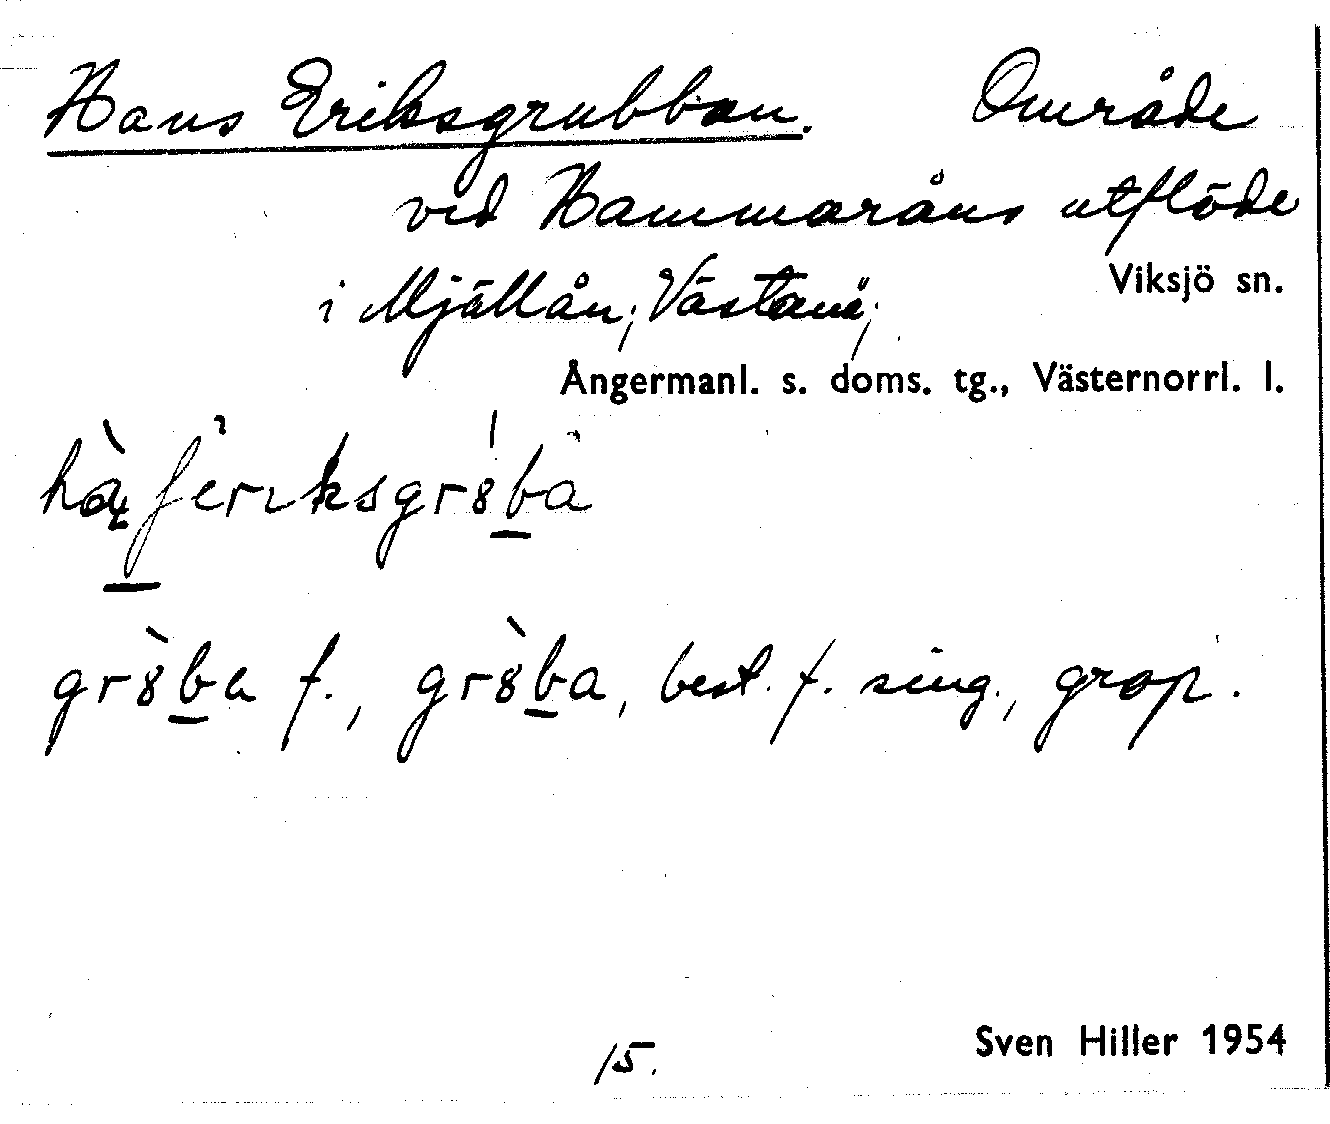 Hans Eriksgrubban. Område
vid Hammaråns utflöde
i Mjällån, Västanå,
Viksjö sn.
Ångermanl. s. doms. tg., Västernorrl. l.
gr8̀ba f., gr8̀ba, best. f. sing., grop.
15.
Sven Hiller 1954